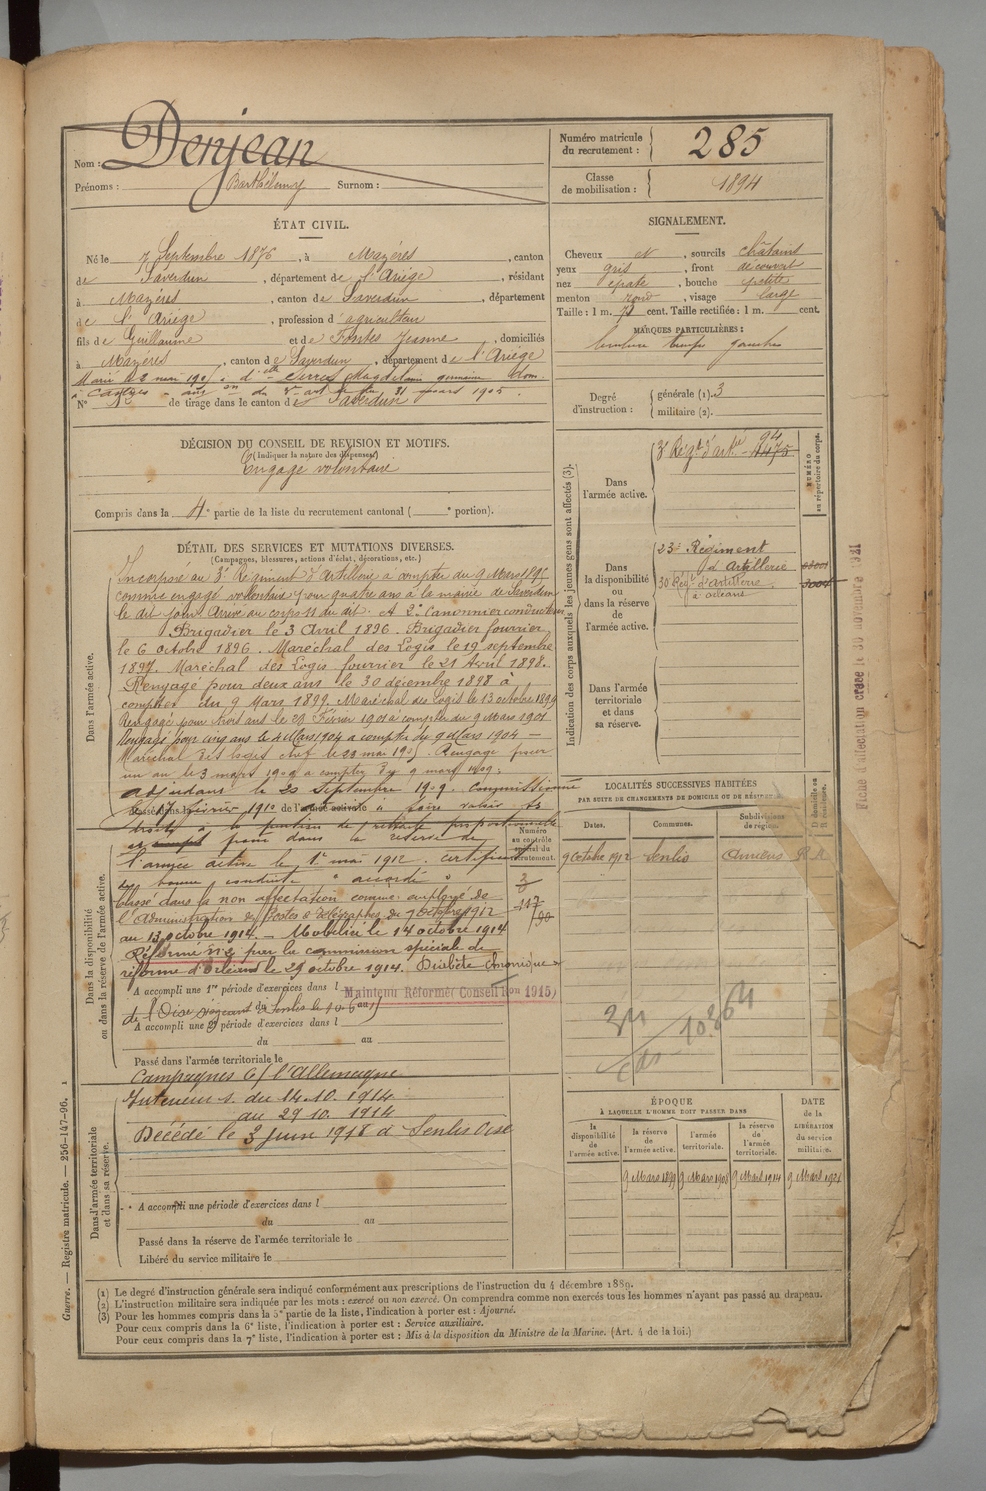 Nom : Denjean
Prénoms : Barthélemy Surnom :
Numéro matricule du recrutement : 285
Classe de mobilisation : 1894
ÉTAT CIVIL.
Né le 7 Septembre 1876, à Mazères, canton
de Saverdun, département de l'Ariège, résidant
à Mazères, canton de Saverdun, département
de l'Ariège, profession d'agriculteur
fils de Guillaume et de Fontes Jeanne, domiciliés
à Mazères, canton de Saverdun, département de l'Ariège
Marié le 2 mai 190 à d'elle Magdelaine germaine dom.
à Castres 31 mars 1905.
N° de tirage dans le canton de Saverdun
SIGNALEMENT.
Cheveux et, sourcils châtains
yeux gris, front découvert
nez épaté, bouche petite
menton rond, visage large
Taille : 1 m. 73 cent. Taille rectifiée : 1 m. cent.
MARQUES PARTICULIÈRES :
Degré d'instruction : générale (1). 3
militaire (2).
DÉCISION DU CONSEIL DE REVISION ET MOTIFS.
(Indiquer la nature des dispenses)
Engagé volontaire
Compris dans la 4e partie de la liste du recrutement cantonal ( e portion).
DÉTAIL DES SERVICES ET MUTATIONS DIVERSES.
(Campagnes, blessures, actions d'éclat, décorations, etc.)
Dans l'armée active.
Incorporé au 3e Régiment d'Artillerie à compter du 9 Mars 1895
comme engagé volontaire pour quatre ans à la mairie de Saverdun
le dit jour. Arrivé au corps 11 du dit. et 2e Canonnier conducteur
Brigadier le 3 Avril 1896. Brigadier fourrier
le 6 octobre 1896. Maréchal des Logis le 19 septembre
1897. Maréchal des Logis fourrier le 21 Avril 1898.
Rengagé pour deux ans le 30 décembre 1898 à
compter du 9 Mars 1899. Maréchal des Logis le 13 octobre 1899
Rengagé pour trois ans le 28 Février 1901 à compter du 9 Mars 1901
Rengagé pour cinq ans le 4 Mars 1904 à compter du 9 Mars 1904 —
Maréchal des logis chef le 23 mai 1905. Rengagé pour
un an le 3 mars 1909 à compter du 9 mars 1909.
adjudant le 20 septembre 1909. Commissionné
le 17 février 1910
Passé dans la de l'armée active à faire valoir ses
droits à la pension de retraite proportionnelle
et passé dans la réserve de
l'armée active le 1er mai 1912. certificat
de bonne conduite "accordé"
Numéro au contrôle spécial du recrutement.
3
117
Dans la disponibilité ou dans la réserve de l'armée active.
Classé dans la non affectation comme employé de
l'Administration des Postes & Télégraphes du 7 octobre 1912
au 13 octobre 1914. — Mobilisé le 14 octobre 1914
Réformé n° 2 par la commission spéciale de
réforme d'Orléans le 29 octobre 1914. Diabète chronique
A accompli une 1re période d'exercices dans l
Maintenu Réformé (Conseil 1915)
de l'Oise siégeant à Senlis le
A accompli une 2e période d'exercices dans l
du au
Passé dans l'armée territoriale le
Campagnes c/ l'Allemagne
Intérieur s. du 14.10.1914
au 29.10.1914
Décédé le 3 Juin 1918 à Senlis Oise
Dans l'armée territoriale et dans sa réserve.
A accompli une période d'exercices dans l
du au
Passé dans la réserve de l'armée territoriale le
Libéré du service militaire le
Indication des corps auxquels les jeunes gens sont affectés (3).
NUMÉRO au répertoire du corps.
Dans l'armée active.
3e Régt d'art.
94
4475
Dans la disponibilité ou dans la réserve de l'armée active.
23e Régiment
d'Artillerie
30 Régt d'Artillerie
à orléans
Dans l'armée territoriale et dans sa réserve.
Fiche d'affectation créée le 30 novembre 1921
LOCALITÉS SUCCESSIVES HABITÉES
PAR SUITE DE CHANGEMENTS DE DOMICILE OU DE RÉSIDENCE.
Dates. Communes. Subdivisions de région.
9 Octobre 1912 Senlis Amiens
ÉPOQUE
À LAQUELLE L'HOMME DOIT PASSER DANS
la disponibilité de l'armée active.
la réserve de l'armée active.
l'armée territoriale.
la réserve de l'armée territoriale.
DATE de la LIBÉRATION du service militaire.
9 Mars 1898 9 Mars 1908 9 Mars 1914 9 Mars 1921
Guerre. — Registre matricule. — 256-147-96. 1
(1) Le degré d'instruction générale sera indiqué conformément aux prescriptions de l'instruction du 4 décembre 1889.
(2) L'instruction militaire sera indiquée par les mots : exercé ou non exercé. On comprendra comme non exercés tous les hommes n'ayant pas passé au drapeau.
(3) Pour les hommes compris dans la 5e partie de la liste, l'indication à porter est : Ajourné.
Pour ceux compris dans la 6e liste, l'indication à porter est : Service auxiliaire.
Pour ceux compris dans la 7e liste, l'indication à porter est : Mis à la disposition du Ministre de la Marine. (Art. 4 de la loi.)